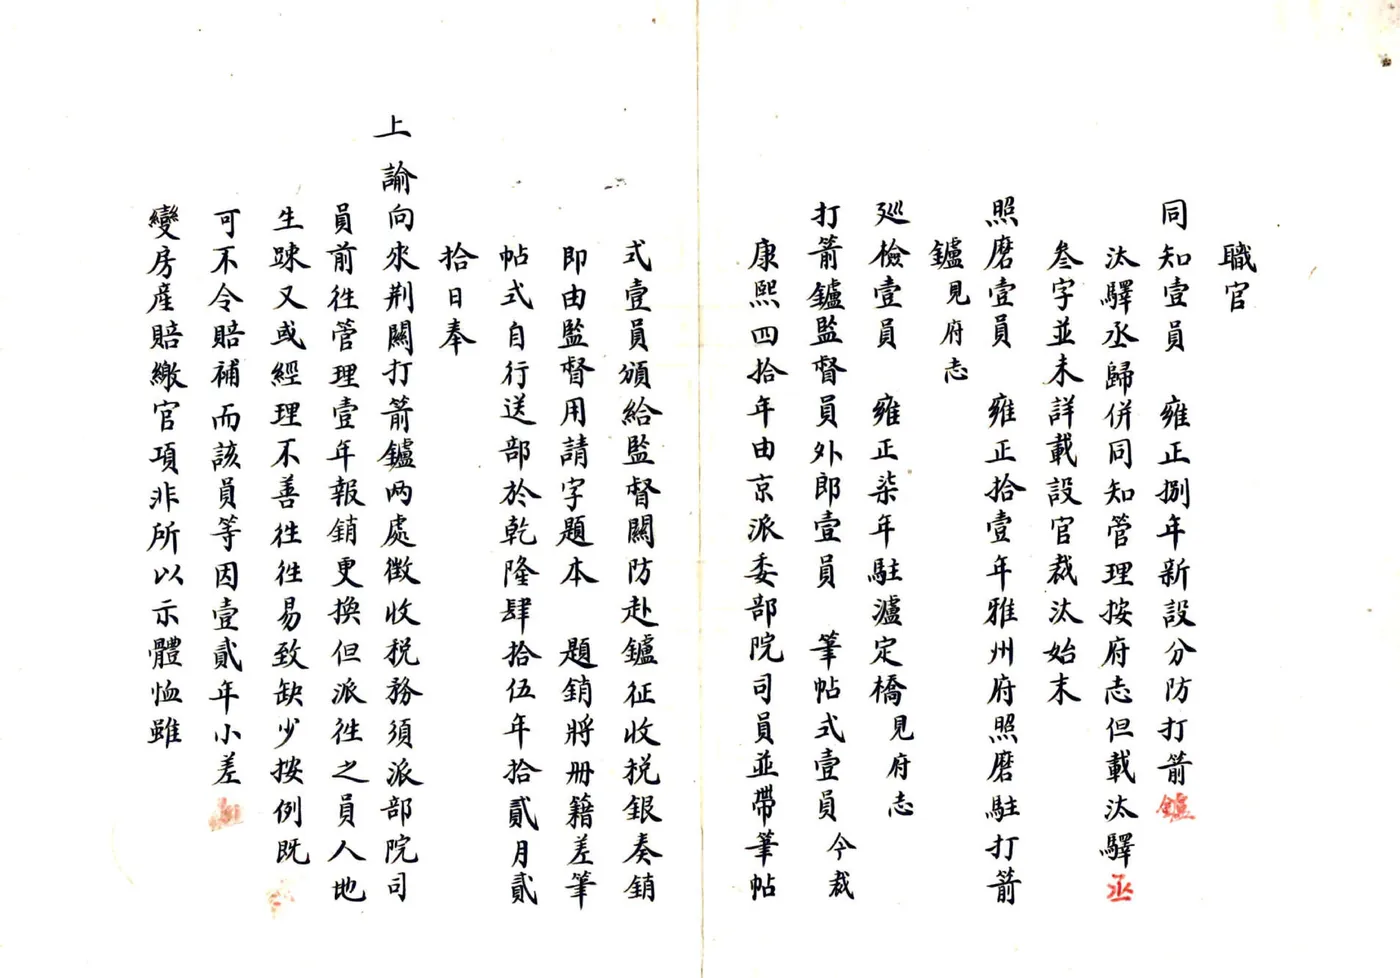 職官
同知壹員　雍正捌年新設分防打箭鑪
汰驛丞歸併同知管理按府志但載汰驛丞
叁字並未詳載設官裁汰始末
照磨壹員　雍正拾壹年雅州府照磨駐打箭
鑪見府志
巡檢壹員　雍正柒年駐瀘定橋見府志
打箭鑪監督員外郎壹員　筆帖式壹員今裁
康熙四拾年由京派委部院司員並帶筆帖
式壹員頒給監督關防赴鑪征收税銀奏銷
即由監督用請字題本　題銷將册籍差筆
帖式自行送部於乾隆肆拾伍年拾貳月貳
拾日奉
上諭向來荆關打箭鑪两處徵收税務須派部院司
員前徃管理壹年報銷更換但派徃之員人地
生踈又或經理不善徃徃易致缺少按例既
可不令賠補而該員等因壹貳年小差
變房産賠繳官項非所以示體恤雖